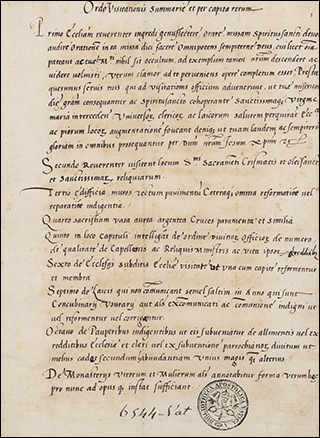 Ordo Visitationis Summarie et per capita rerum
Primo Ecclīam reverenter ingredi genuflectere orare missam Spirituſsancti devote
audire Orationē in ea missa dici facere Omnipotens sempiterne Deus cui licet oīa
pateant ac tue Mti nihil sit occultum, ad exemplum tamen nrūm descendere ac
videre voluisti, Utrum clamor ad te perveniens opere completum esset Presta
quesumus servis tuis qui ad visitationis officium advenerunt, ut tue misericor
die gratī consequantur ac Spiritusancto cohoperante Sanctissimaq. Virgine
maria intercedente Universor. clericor. ac laicorum salutem perquirat Ecclīe
ac piorum locor. augmentatione foveant denīq ut tuam laudem ac sempiternā
gloriam in omnibus prosequantur per Dnūm nrūm Jesum
Secundo Reverenter visitent locum Smi Sacramēti Crismatis et olei sancti
ac Sanctissimar. reliquiarum
Tertio Edifficia muros tectum pavimentū Ceteraq. omnia reformatiōe vel
reparatiōe indigentia
Quarto Sacristiam vasa aurea argentea Cruces paramenta et similia
Quinto in loco Capituli intelligāt de ordine divinor. Officior. de numero
de qualitate de Capellanis ac Reliquis Ministris ac vita ipsor.
Sexto de Ecclesijs subditis Ecclīe visitate ut una cum capite reformentur
et membra
Septimo de Laicis qui non comunicant semel saltim in Anno qui sunt
Concubinarij Usurarij aut als excomunicati ac comunione indigni ut
vel reformentur vel corrigantur
Octavo de Pauperibus indigentibus ut eis subveniatur de alimentis vel ex
redditibus Ecclesie et cleri vel ex subventione parrochianor. divitum ut
melius cadat secundum abundantiam unius magis q. alterius
De Monasterijs Virorum et Mulierum als annotabitur forma verum hec
pro nunc ad opus q. instat sufficiant
6544 Lat
BIBLIOTHECA APOSTOLICA VATICANA